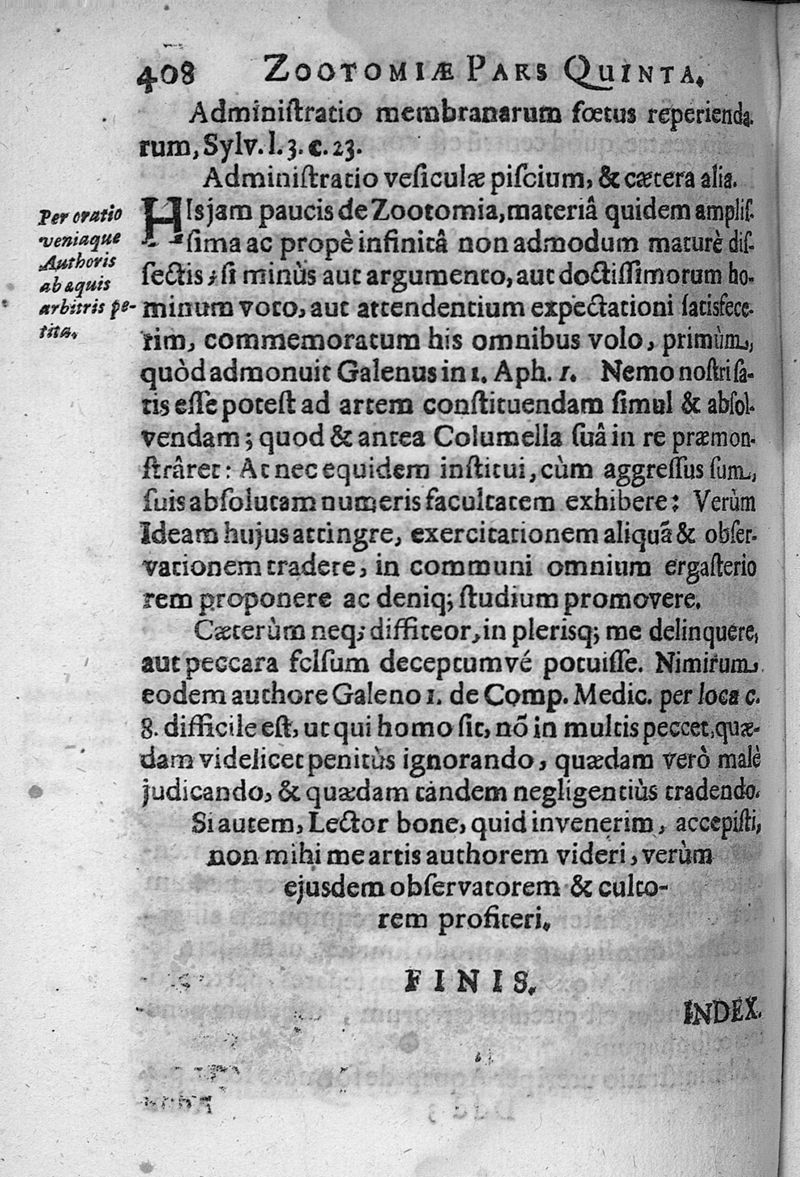 408 ZOOTOMIÆ PARS QUINTA.
Adminiſtratio membranarum fœtus reperienda-
rum, Sylv. l. 3. c. 23.
Adminiſtratio veſiculæ piſcium, & cætera alia.
Per oratio
veniaque
Authoris
ab æquis
arbitris pe-
tita.
HIs jam paucis de Zootomia, materiâ quidem ampliſ-
ſima ac propè infinitâ non admodum maturè diſ-
ſectis; ſi minùs aut argumento, aut doctiſſimorum ho-
minum voto, aut attendentium expectationi ſatisfece-
rim, commemoratum his omnibus volo, primùm,
quòd admonuit Galenus in 1. Aph. 1. Nemo noſtri ſa-
tis eſſe poteſt ad artem conſtituendam ſimul & abſol-
vendam; quod & antea Columella ſuâ in re præmon-
ſtrâret: At nec equidem inſtitui, cùm aggreſſus ſum,
ſuis abſolutam numeris facultatem exhibere: Verùm
Ideam hujus attingre, exercitationem aliquã & obſer-
vationem tradere, in communi omnium ergaſterio
rem proponere ac deniq; ſtudium promovere.
Cæterùm neq; diffiteor, in pleriſq; me delinquere,
aut peccara fclſum deceptumvé potuiſſe. Nimirum
eodem authore Galeno 1. de Comp. Medic. per loca c.
8. difficile eſt, ut qui homo ſit, nõ in multis peccet, quæ-
dam videlicet penitùs ignorando, quædam verò malè
judicando, & quædam tandem negligentiùs tradendo.
Si autem, Lector bone, quid invenerim, accepiſti,
non mihi me artis authorem videri, verùm
ejusdem obſervatorem & culto-
rem profiteri.
FINIS.
INDEX.